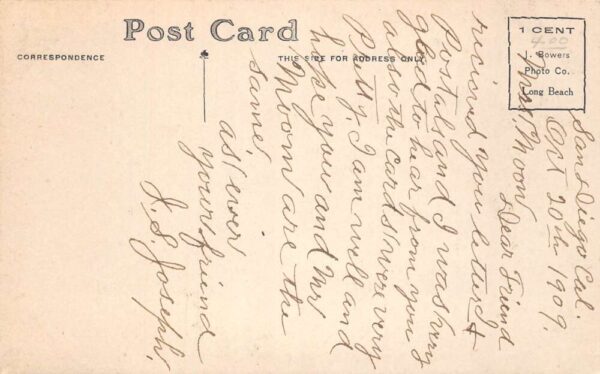 Post Card
CORRESPONDENCE
THIS SIDE FOR ADDRESS ONLY
1 CENT
4.00
J. Bowers
Photo Co.
Long Beach
San Diego Cal.
Oct 20th 1909.
Mrs. Moon, Dear Friend
recieved you letter &
Postals and I was very
glad to hear from you
also the cards were very
Pretty. I am well and
hope you and Mr
Moon are the
same,
as ever
your friend
J. S. Joseph.